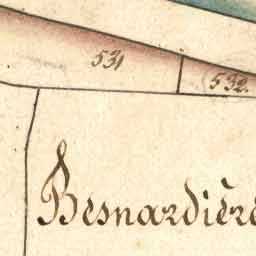 531
532.
Besnardière